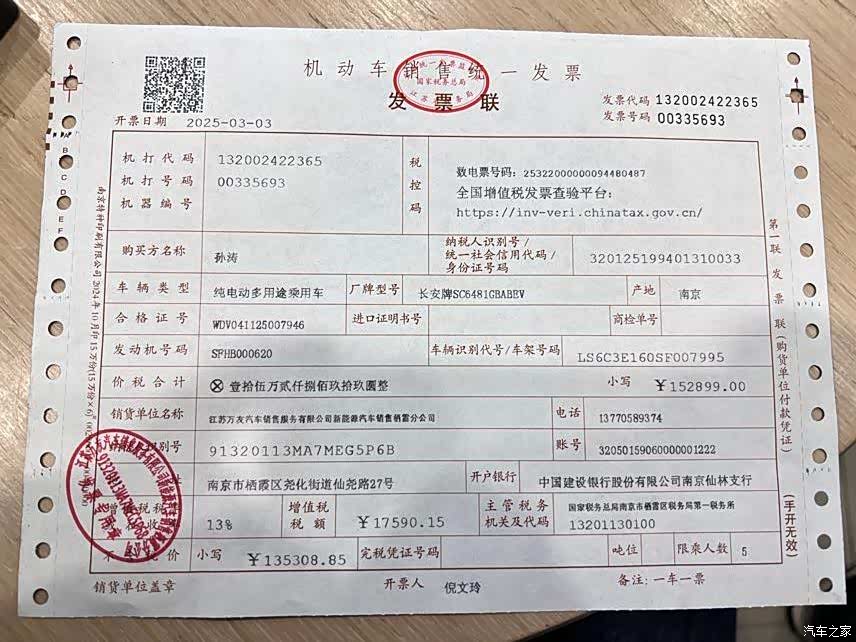 机动车销售统一发票
发票联
发票代码 132002422365
发票号码 00335693
开票日期 2025-03-03
机打代码 132002422365
机打号码 00335693
机器编号
税控码
数电票号码：25322000000094480487
全国增值税发票查验平台：
https://inv-veri.chinatax.gov.cn/
购买方名称 孙涛
纳税人识别号/
统一社会信用代码/
身份证号码
320125199401310033
车辆类型 纯电动多用途乘用车 厂牌型号 长安牌SC6481GBABEV 产地 南京
合格证号 WDV041125007946 进口证明书号 商检单号
发动机号码 SFHB000620 车辆识别代号/车架号码 LS6C3E160SF007995
价税合计 ⊗壹拾伍万贰仟捌佰玖拾玖圆整 小写 ￥152899.00
销货单位名称 江苏万友汽车销售服务有限公司新能源汽车销售栖霞分公司 电话 13770589374
识别号 91320113MA7MEG5P6B 账号 32050159060000001222
南京市栖霞区尧化街道仙尧路27号 开户银行 中国建设银行股份有限公司南京仙林支行
增值税税 13% 增值税
税额 ￥17590.15 主管税务
机关及代码 国家税务总局南京市栖霞区税务局第一税务所
13201130100
不 价 小写 ￥135308.85 完税凭证号码 吨位 限乘人数 5
销货单位盖章 开票人 倪文玲 备注：一车一票
第一联 发票联(购货单位付款凭证)
(手开无效)
国家税务总局
91320113MA7MEG5P6B
汽车之家